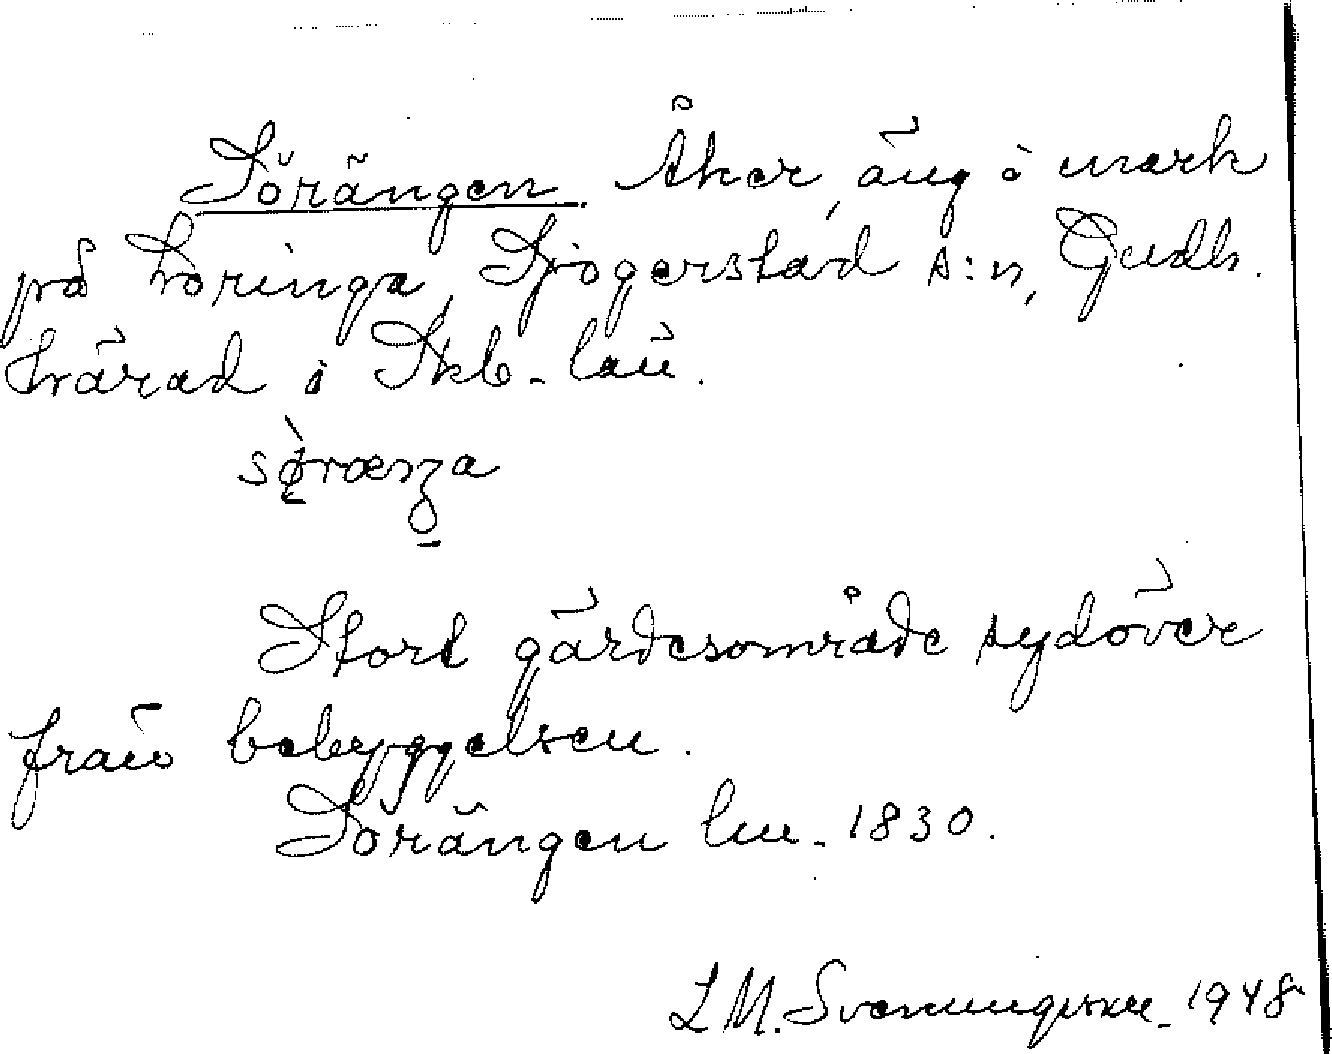 Sörängen. Åker, äng o mark
på Loringa, Sjogerstad s:n, Gudh.
härad i Skb. län.
Stort gärdesområde sydöver
från bebyggelsen.
Sörängen lm. 1830.
L M. Svenungsson. 1948